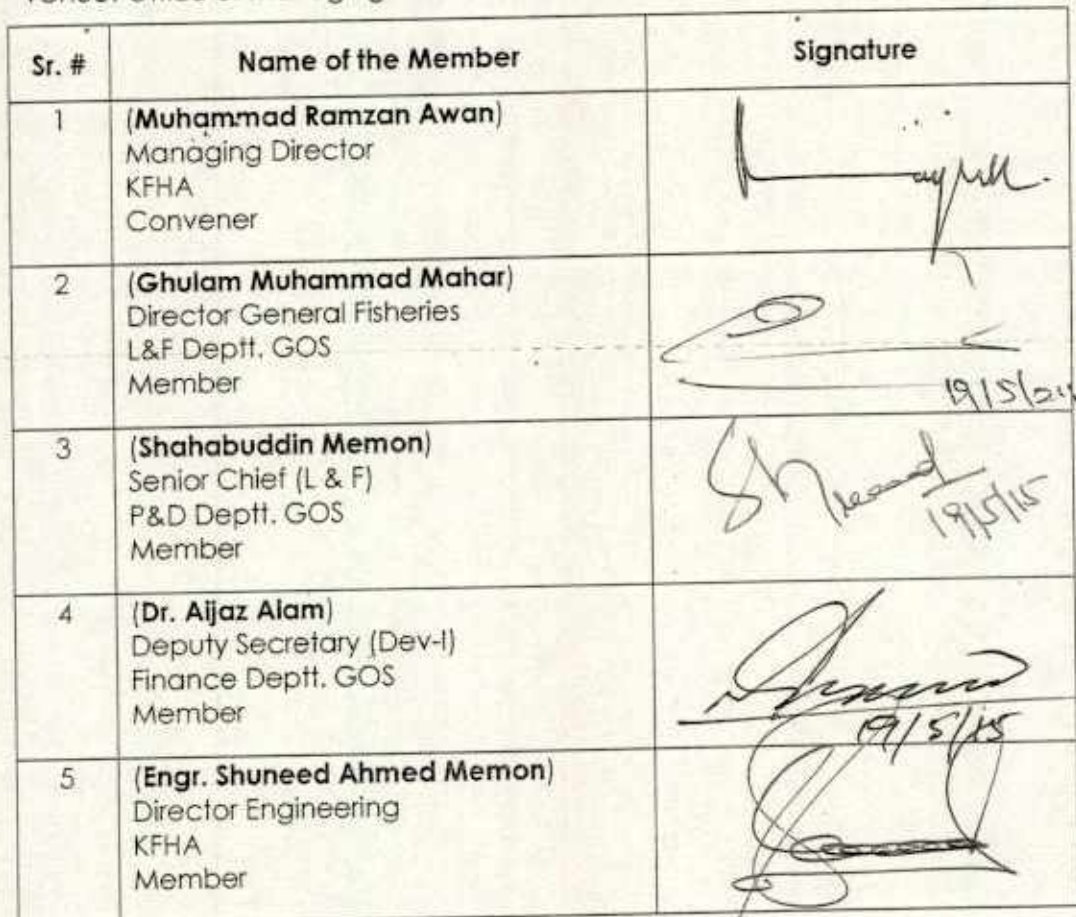 Sr. # Name of the Member Signature
1 (Muhammad Ramzan Awan)
Managing Director
KFHA
Convener
2 (Ghulam Muhammad Mahar)
Director General Fisheries
L&F Deptt. GOS
Member
19/5/201
3 (Shahabuddin Memon)
Senior Chief (L & F)
P&D Deptt. GOS
Member
19/5/15
4 (Dr. Aijaz Alam)
Deputy Secretary (Dev-I)
Finance Deptt. GOS
Member
19/5/15
5 (Engr. Shuneed Ahmed Memon)
Director Engineering
KFHA
Member